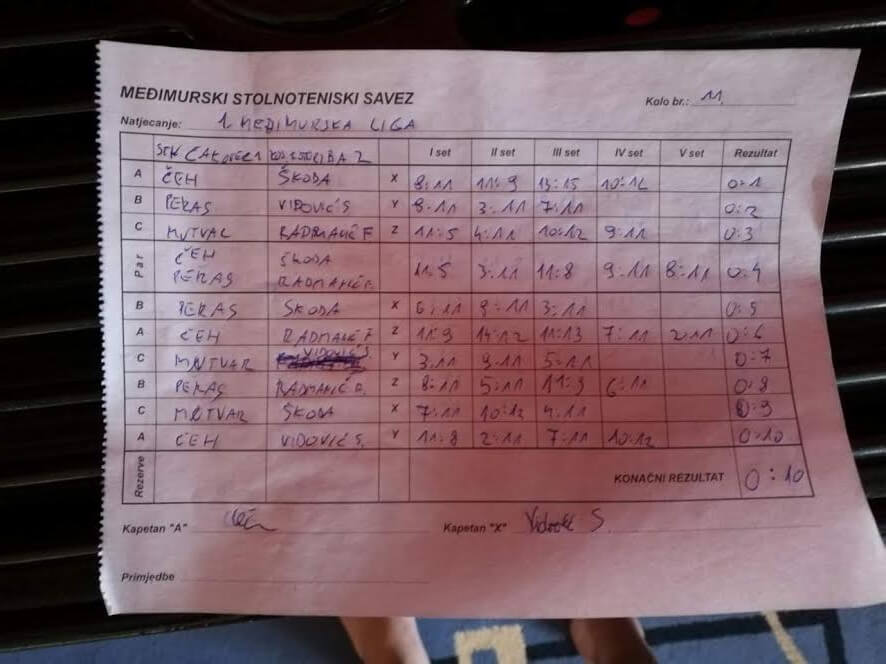 MEĐIMURSKI STOLNOTENISKI SAVEZ
Kolo br.: 11.
Natjecanje: 1. MEĐIMURSKA LIGA
STK ČAKOVEC 1 2 I set II set III set IV set V set Rezultat
A ČEH ŠKODA X 8:11 11:9 13:15 10:12 0:1
B PERAS VIDOVIĆ S Y 8:11 3:11 7:11 0:2
C MNTVAR RADMANIĆ F Z 11:5 4:11 10:12 9:11 0:3
Par ČEH ŠKODA 11:5 3:11 11:8 9:11 8:11 0:4
PERAS RADMANIĆ F.
B PERAS ŠKODA X 6:11 9:11 3:11 0:5
A ČEH RADMANIĆ F Z 11:9 14:12 11:13 7:11 2:11 0:6
C MNTVAR VIDOVIĆ S. Y 3:11 9:11 5:11 0:7
B PERAS RADMANIĆ F. Z 8:11 5:11 11:9 6:11 0:8
C MNTVAR ŠKODA X 7:11 10:12 4:11 0:9
A ČEH VIDOVIĆ S. Y 11:8 2:11 7:11 10:12 0:10
Rezerve KONAČNI REZULTAT 0:10
Kapetan "A" Kapetan "X" Vidović S.
Primjedbe